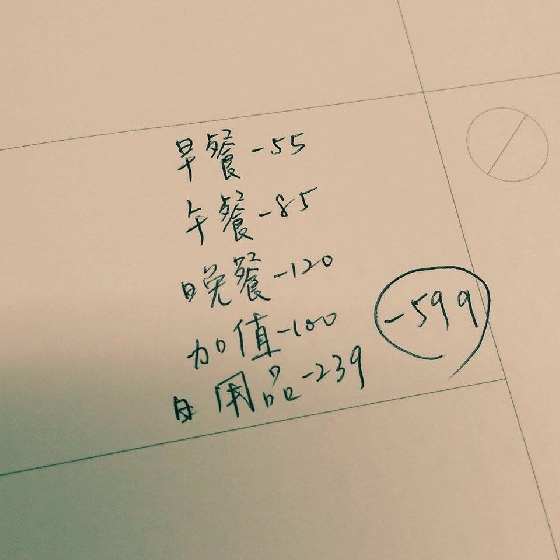 早餐-55
午餐-85
晚餐-120
加值-100
日用品-239
-599